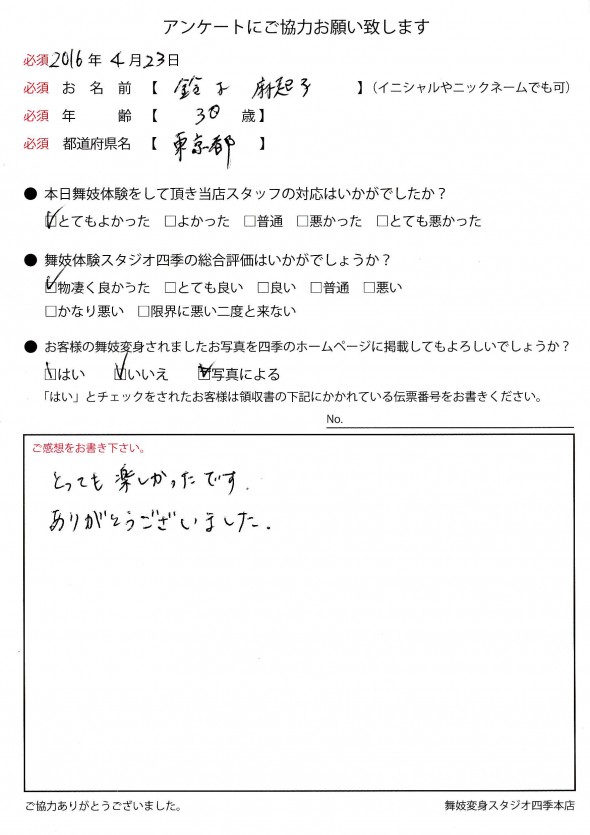 アンケートにご協力お願い致します
必須 2016年 4月23日
必須 お 名 前 【 麻起子 】（イニシャルやニックネームでも可）
必須 年 齢 【 30 歳】
必須 都道府県名 【 東京都 】
● 本日舞妓体験をして頂き当店スタッフの対応はいかがでしたか？
☑とてもよかった □よかった □普通 □悪かった □とても悪かった
● 舞妓体験スタジオ四季の総合評価はいかがでしょうか？
☑物凄く良かった □とても良い □良い □普通 □悪い
□かなり悪い □限界に悪い二度と来ない
● お客様の舞妓変身されましたお写真を四季のホームページに掲載してもよろしいでしょうか？
□はい ☑いいえ ☑写真による
「はい」とチェックをされたお客様は領収書の下記にかかれている伝票番号をお書きください。
No.
ご感想をお書き下さい。
とっても楽しかったです.
ありがとうございました.
ご協力ありがとうございました。 舞妓変身スタジオ四季本店